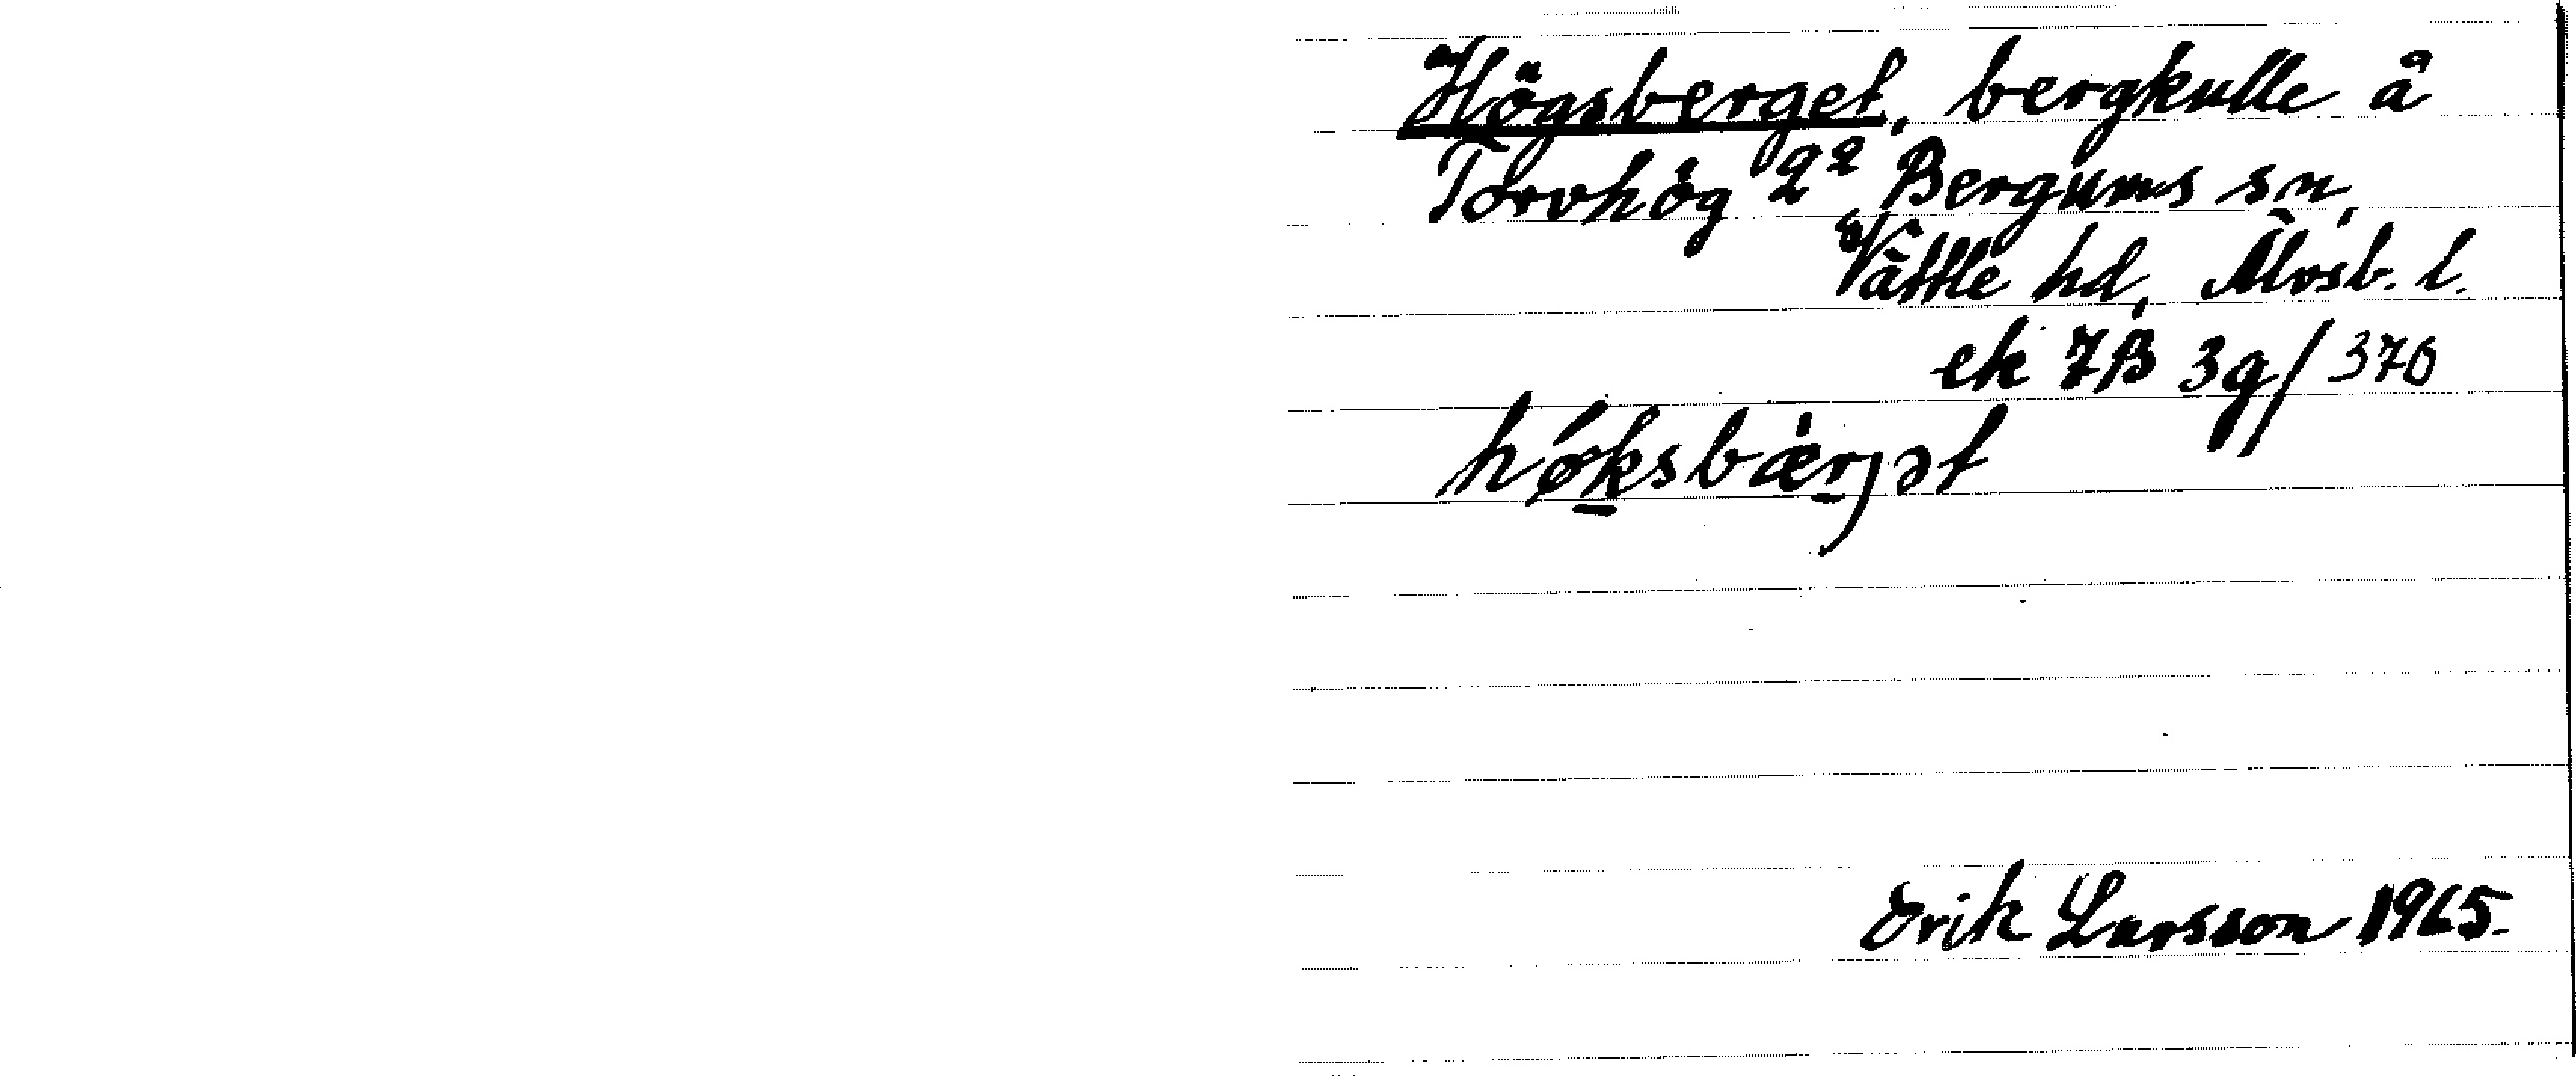 Högsberget, bergkulle å
Torvhög 2² Bergums sn,
Vättle hd, Älvsb. l.
ek 7B 3g/370
høksbærjət
Erik Larsson 1965.